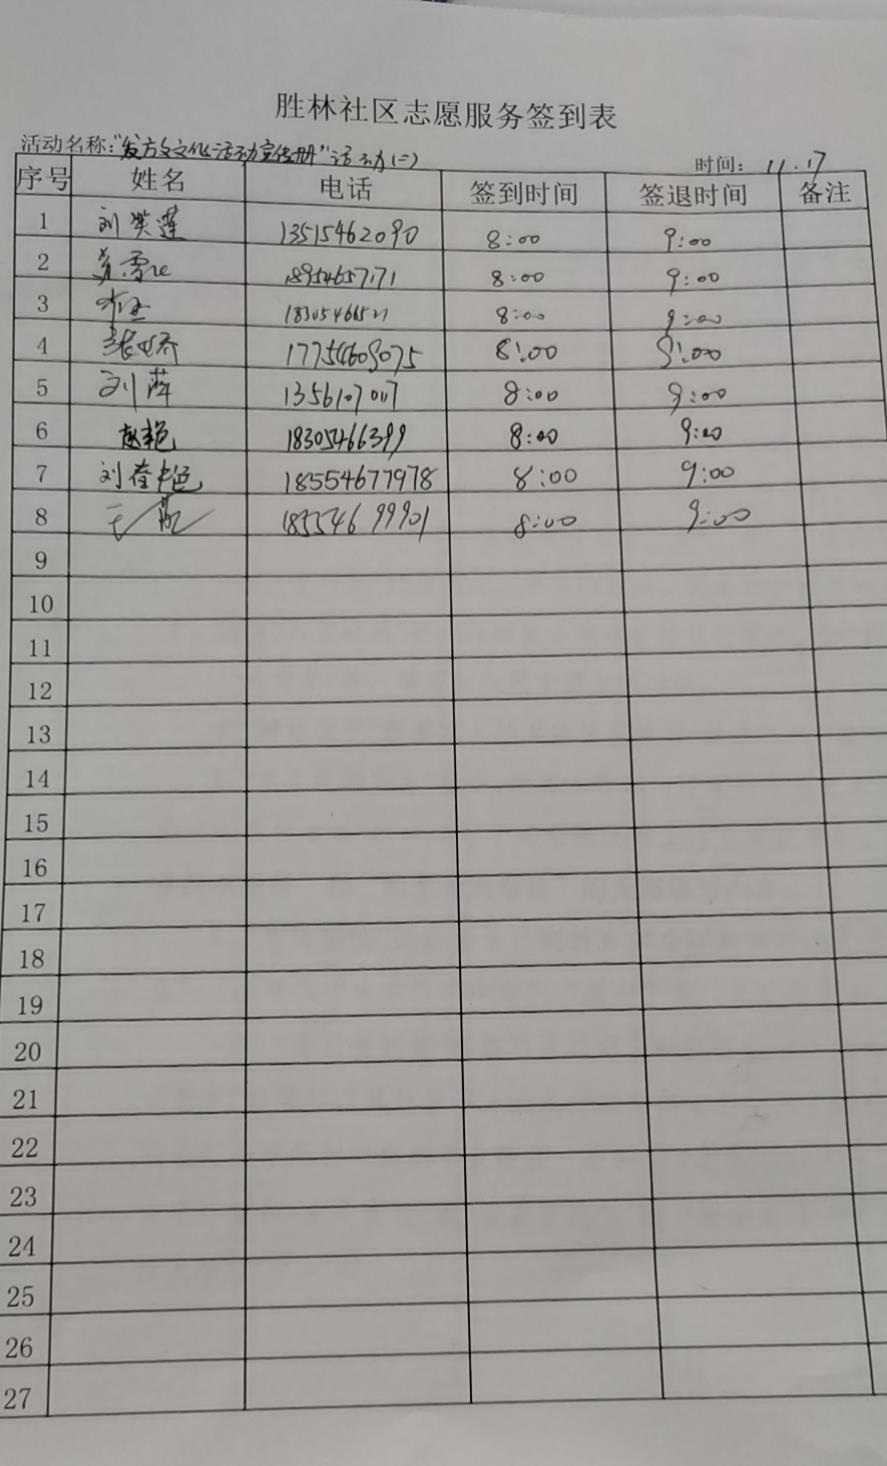 胜林社区志愿服务签到表
活动名称:"发放文化活动宣传册"活动(二) 时间: 11.17
序号 姓名 电话 签到时间 签退时间 备注
1 刘英莲 13515462090 8:00 9:00
2 18954657171 8:00 9:00
3 8:00 9:00
4 17754609075 8:00 9:00
5 刘萍 8:00 9:00
6 赵艳 18305466399 8:00 9:00
7 刘春艳 18554677978 8:00 9:00
8 18554699901 8:00 9:00
9
10
11
12
13
14
15
16
17
18
19
20
21
22
23
24
25
26
27